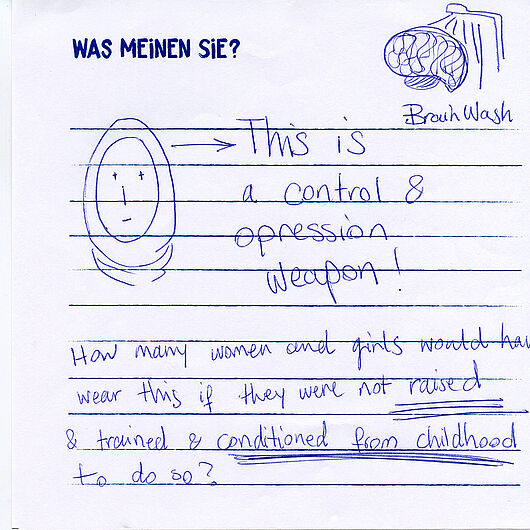 WAS MEINEN SIE?
Brain Wash
This is
a control &
opression
weapon!
How many women and girls would hav
wear this if they were not raised
& trained & conditioned from childhood
to do so?